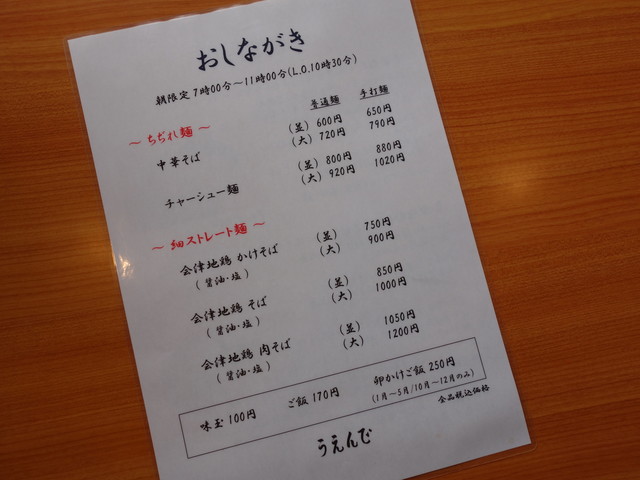 おしながき
朝限定 7時00分～11時00分(L.O.10時30分)
普通麺 手打麺
～ ちぢれ麺 ～
中華そば (並) 600円 650円
(大) 720円 790円
チャーシュー麺 (並) 800円 880円
(大) 920円 1020円
～ 細ストレート麺 ～
会津地鶏 かけそば (並) 750円
(醤油・塩) (大) 900円
会津地鶏 そば (並) 850円
(醤油・塩) (大) 1000円
会津地鶏 肉そば (並) 1050円
(醤油・塩) (大) 1200円
味玉 100円 ご飯 170円 卵かけご飯 250円
(1月～5月/10月～12月のみ)
全品税込価格
うえんで